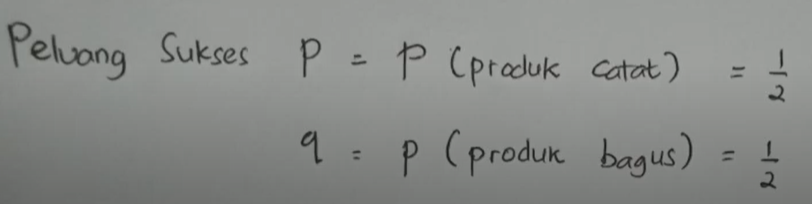 Peluang Sukses P = P (produk catat) = 1/2
q = p (produk bagus) = 1/2